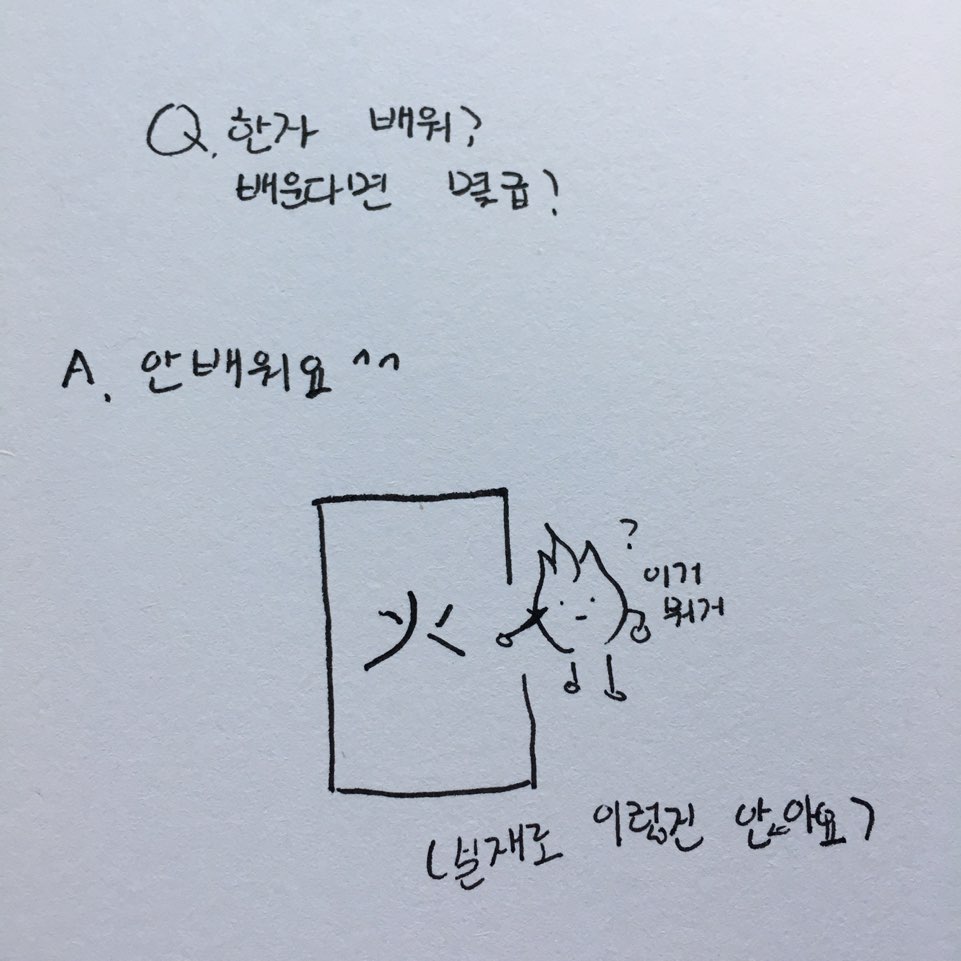 Q. 한자 배워?
배운다면 몇급?
A. 안배워요 ^^
火
?
이거
뭐거
(실재로 이럽진 안아요)